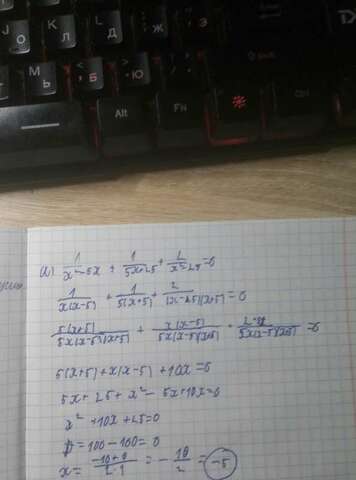 Ю К Л Д Ж Э
М Ь Б Ю
Alt Fn Ctrl
а) 1/(x²-5x) + 1/(5x+25) + 2/(x²-25) = 0
1/(x(x-5)) + 1/(5(x+5)) + 2/((x-5)(x+5)) = 0
5(x+5)/(5x(x-5)(x+5)) + x(x-5)/(5x(x-5)(x+5)) + /(5x(x-5)(x+5)) = 0
5(x+5)+x(x-5)+10x=0
5x+25+x²-5x+10x=0
x²+10x+25=0
D=100-100=0
x= (-10+0)/(2·1) = -10/2 = -5